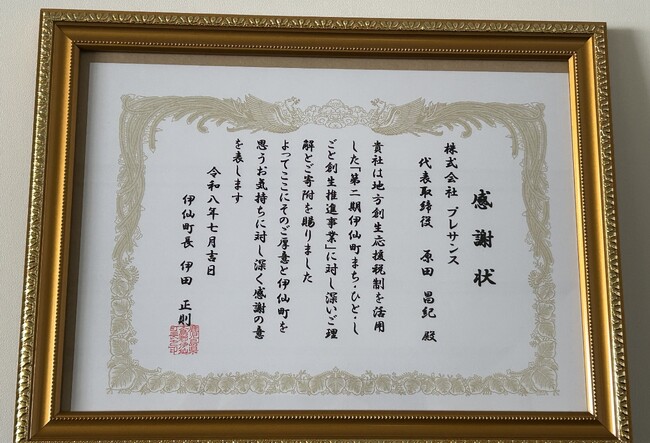 感謝状
株式会社 プレサンス
代表取締役 原田 昌紀 殿
貴社は地方創生応援税制を活用
した「第二期伊仙町まち・ひと・し
ごと創生推進事業」に対し深いご理
解とご寄附を賜りました
よってここにそのご厚意と伊仙町を
思うお気持ちに対し深く感謝の意
を表します
令和八年七月吉日
伊仙町長 伊田 正則